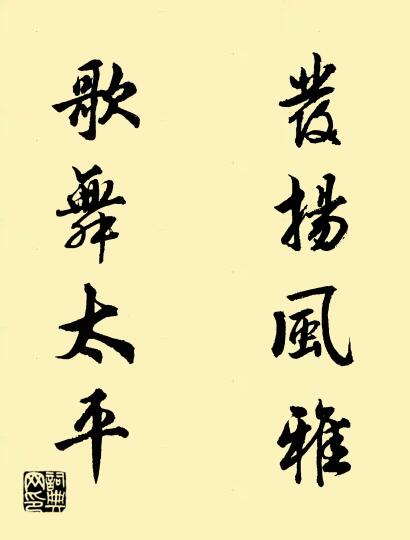 發揚風雅
歌舞太平
詞典
网印